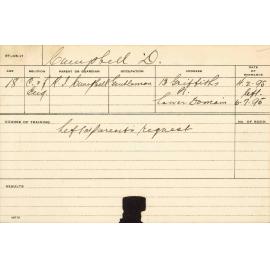 STUDENT Campbell D.
AGE RELIGION PARENT OR GUARDIAN OCCUPATION ADDRESS DATE OF ENTRANCE
18 C. of A J Campbell Gentleman 13 Griffiths 4.2.95
Eng. St. left
Lower Domain 6.7.95
COURSE OF TRAINING No. OF ROOM
Left at parents request
RESULTS